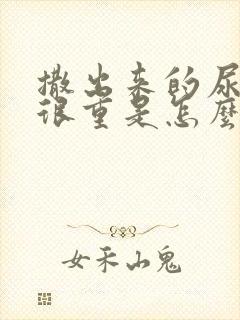 撒出来的尿
很重是怎麽
女禾山鬼